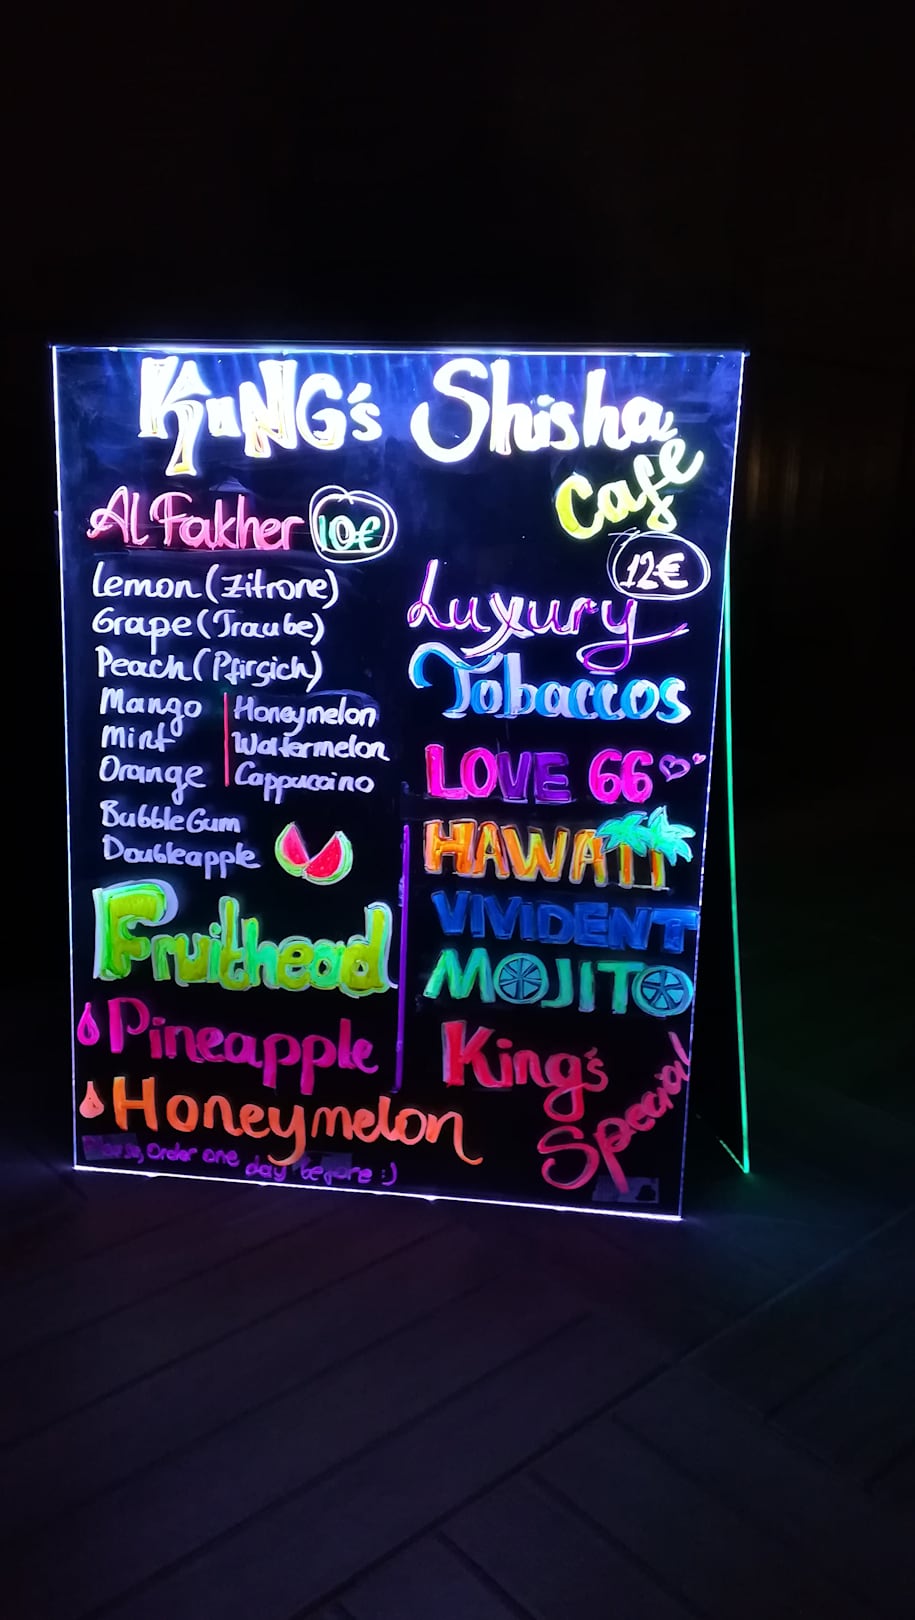 KiNG's Shisha
Cafe
Al Fakher 10€
Lemon (Zitrone)
Grape (Traube)
Peach (Pfirsich)
Mango
Mint
Orange
Honeymelon
Watermelon
Cappuccino
BubbleGum
Doubleapple
Fruithead
Pineapple
Honeymelon
Please, Order one day before :)
12€
Luxury
Tobaccos
LOVE 66
HAWAII
VIVIDENT
MOJITO
King's
Special